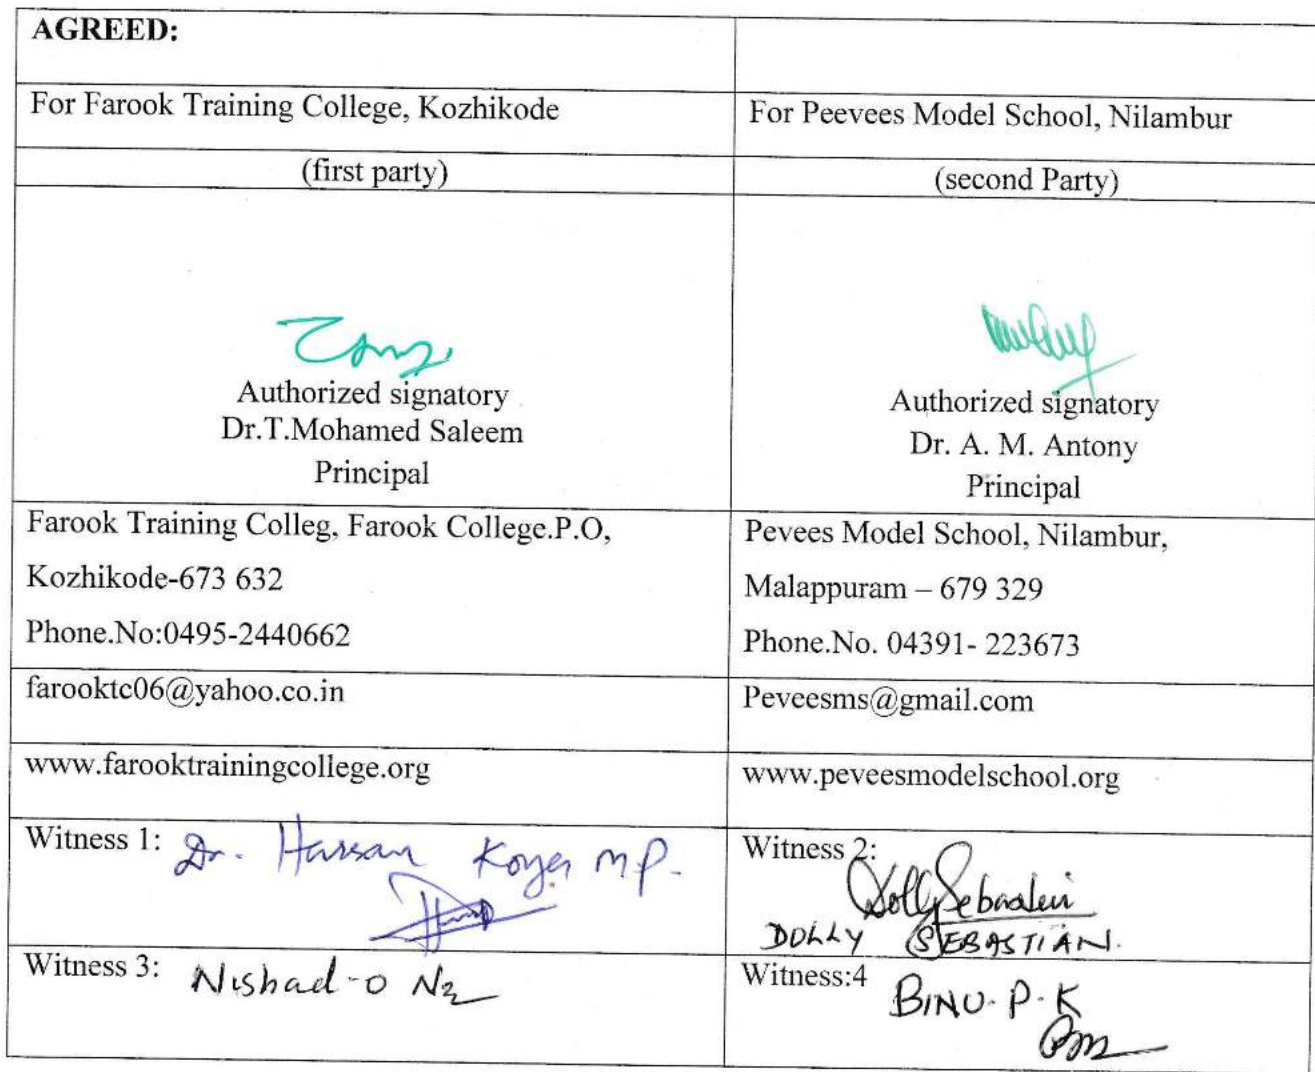 AGREED:
For Farook Training College, Kozhikode
For Peevees Model School, Nilambur
(first party)
(second Party)
Authorized signatory
Dr.T.Mohamed Saleem
Principal
Authorized signatory
Dr. A. M. Antony
Principal
Farook Training Colleg, Farook College.P.O,
Kozhikode-673 632
Phone.No:0495-2440662
Pevees Model School, Nilambur,
Malappuram – 679 329
Phone.No. 04391- 223673
farooktc06@yahoo.co.in
Peveesms@gmail.com
www.farooktrainingcollege.org
www.peveesmodelschool.org
Witness 1: Dr. Hassan Koya M P.
Witness 2:
Dolly Sebastian
DOLLY SEBASTIAN.
Witness 3: Nishad-O
Witness:4 BINU. P. K